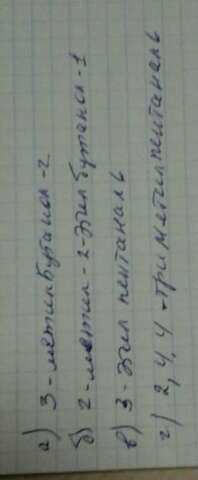 а) 3-метилбутанол-2
б) 2-метил-2-этилбутанол-1
в) 3-этил пентаналь
г) 2,4,4-триметилпентаналь